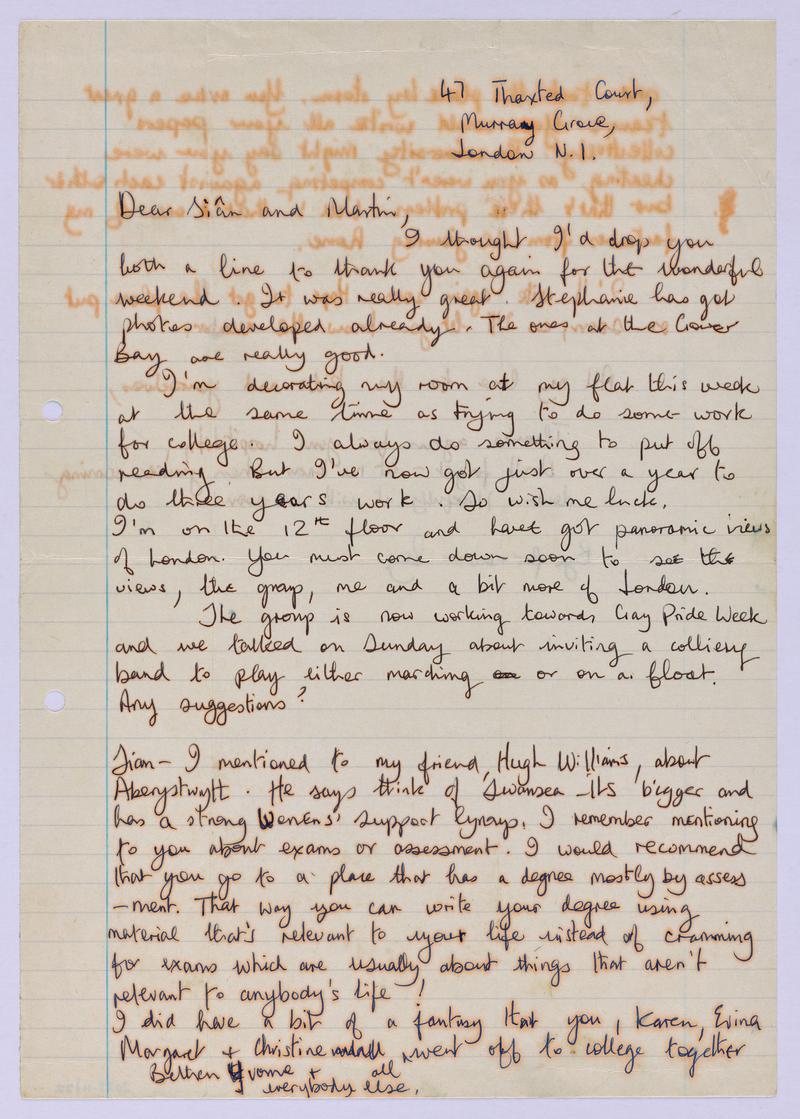 47 Thaxted Court,
Murray Grove,
London N.1.
Dear Siân and Martin,
I thought I'd drop you
both a line to thank you again for the wonderful
weekend. It was really great. Stephanie has got
photos developed already. The ones at the Gower
Bay are really good.
I'm decorating my room at my flat this week
at the same time as trying to do some work
for college. I always do something to put off
reading. But I've now got just over a year to
do three years work. So wish me luck.
I'm on the 12th floor and have got panoramic views
of London. You must come down soon to see the
views, the group, me and a bit more of London.
The group is now working towards Gay Pride Week
and we talked on Sunday about inviting a colliery
band to play either marching or or on a float.
Any suggestions?
Sian- I mentioned to my friend, Hugh Williams, about
Aberystwyth. He says think of Swansea - its bigger and
has a strong Womens' Support Group. I remember mentioning
to you about exams or assessment. I would recommend
that you go to a place that has a degree mostly by assess
-ment. That way you can write your degree using
material that's relevant to your life instead of cramming
for exams which are usually about things that aren't
relevant to anybody's life!
I did have a bit of a fantasy that you, Karen,
Margaret + Christine went off to college together
Yvonne + all
everybody else,